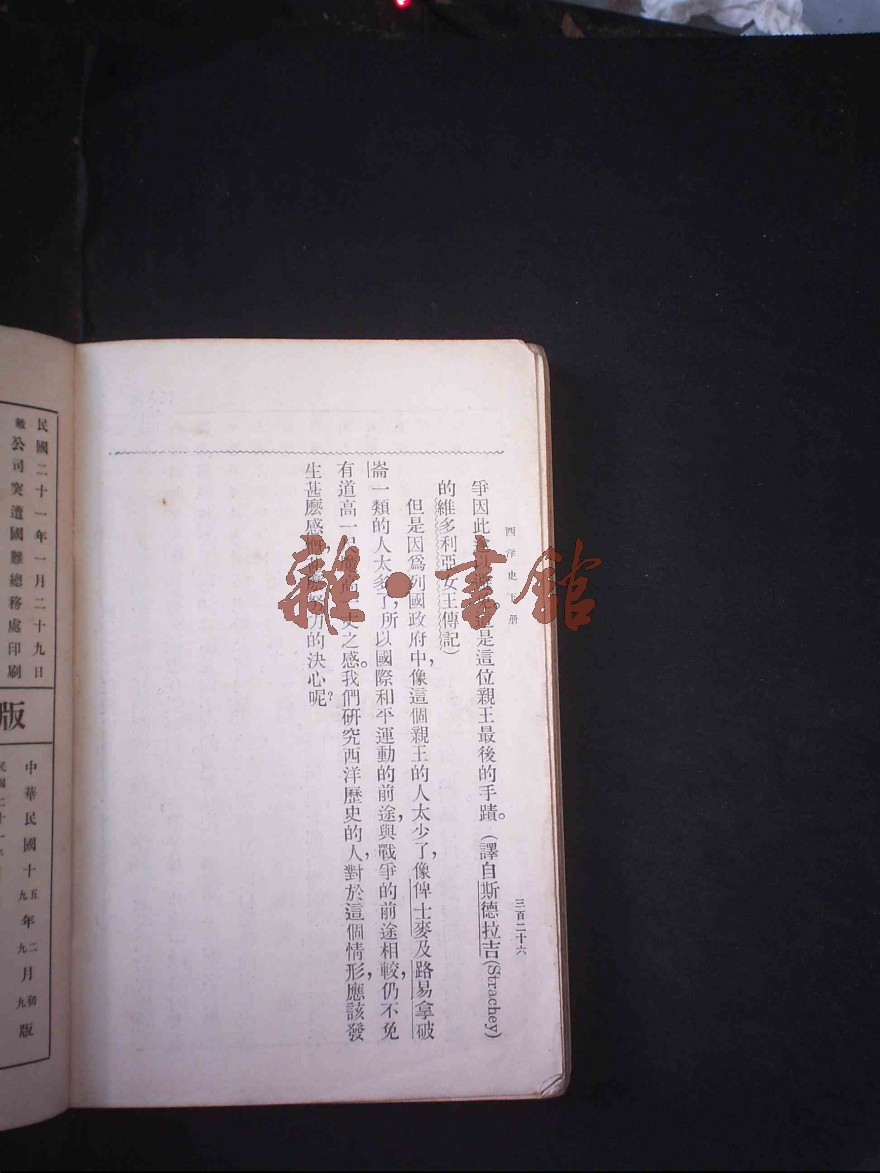 西洋史下册
三百二十六
爭因此 是這位親王最後的手蹟。(譯自斯德拉吉(Strachey)
的維多利亞女王傳記)
但是因爲列國政府中,像這個親王的人太少了,像俾士麥及路易拿破
崙一類的人太多了,所以國際和平運動的前途,與戰爭的前途相較,仍不免
有道高一 高 丈之感。我們研究西洋歷史的人,對於這個情形,應該發
生甚麽感 努力的決心呢?
雜·書館
民國二十一年一月二十九日
敝公司突遭國難總務處印刷
版
中華民國十五年二月初版